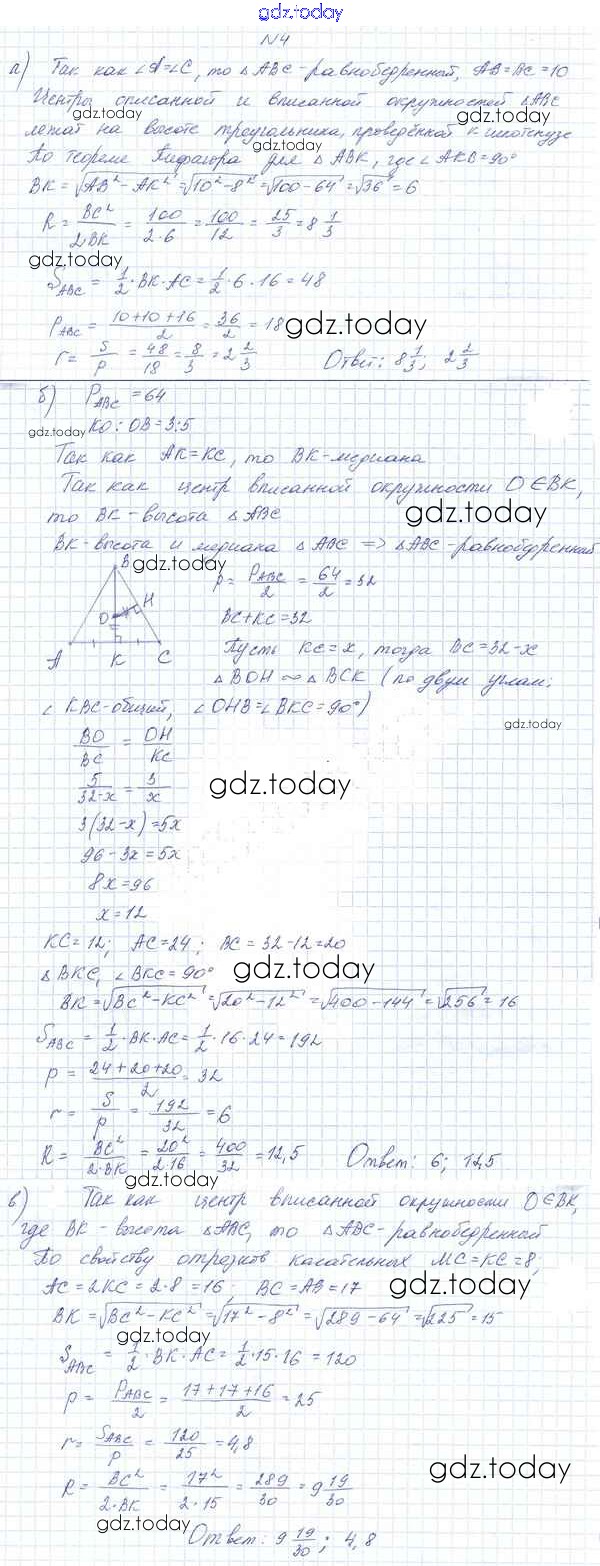 gdz.today
N4
а) Так как ∠A=∠C, то △ABC-равнобедренный, AB=BC=10
Центры описанной и вписанной окружностей △ABC
gdz.today
лежат на высоте треугольника, проведённой к гипотенузе
По теореме Пифагора для △ABK, где ∠AKB=90°
BK = √(AB²-AK²) = √(10²-8²) = √(100-64) = √36 = 6
R = BC²/(2BK) = 100/(2·6) = 100/12 = 25/3 = 8 1/3
gdz.today
S_ABC = 1/2·BK·AC = 1/2·6·16 = 48
P_ABC = (10+10+16)/2 = 36/2 = 18 gdz.today
r = S/p = 48/18 = 8/3 = 2 2/3 Ответ: 8 1/3; 2 2/3
б) P_ABC = 64
gdz.today KO:OB=3:5
Так как AK=KC, то BK-медиана
Так как центр вписанной окружности O∈BK,
gdz.today
то BK-высота △ABC
BK-высота и медиана △ABC => △ABC-равнобедренный
gdz.today
B O H A K C
p = P_ABC/2 = 64/2 = 32
BC+KC=32
Пусть KC=x, тогда BC=32-x
△BOH ∼ △BCK (по двум углам:
∠KBC-общий, ∠OHB=∠BKC=90°)
gdz.today
BO/BC = OH/KC
5/(32-x) = 3/x
gdz.today
3(32-x)=5x
96-3x=5x
8x=96
x=12
KC=12; AC=24; BC=32-12=20
△BKC, ∠BKC=90° gdz.today
BK = √(BC²-KC²) = √(20²-12²) = √(400-144) = √256 = 16
S_ABC = 1/2·BK·AC = 1/2·16·24 = 192
p = (24+20+20)/2 = 32
r = S/p = 192/32 = 6
R = BC²/(2·BK) = 20²/(2·16) = 400/32 = 12,5 Ответ: 6; 12,5
gdz.today
в) Так как центр вписанной окружности O∈BK,
где BK-высота △ABC, то △ABC-равнобедренный
По свойству отрезков касательных MC=KC=8;
AC=2KC=2·8=16, BC=AB=17 gdz.today
BK = √(BC²-KC²) = √(17²-8²) = √(289-64) = √225 = 15
gdz.today
S_ABC = 1/2·BK·AC = 1/2·15·16 = 120
p = P_ABC/2 = (17+17+16)/2 = 25
r = S_ABC/p = 120/25 = 4,8
gdz.today
R = BC²/(2·BK) = 17²/(2·15) = 289/30 = 9 19/30
gdz.today
Ответ: 9 19/30; 4,8